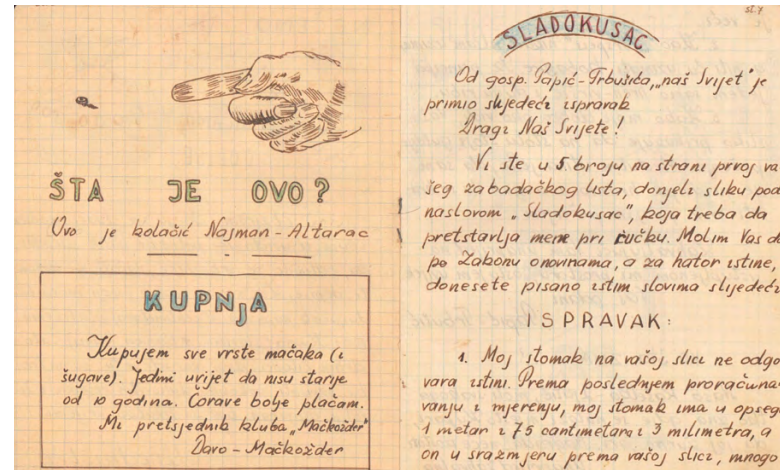 ŠTA JE OVO?
Ovo je kolačić Najman-Altarac
KUPNjA
Kupujem sve vrste mačaka (i
šugave). Jedini uvijet da nisu starije
od 10 godina. Ćorave bolje plačam.
Mi pretsjednik kluba „Mačkožder"
Davo-Mačkožder
st.7
SLADOKUSAC
Od gosp. Papić-Trbušića, „naš Svijet" je
primio slijedeći ispravak
Dragi Naš Svijete!
Vi ste u 5 broju na strani prvoj va
šeg zabadačkog lista, donjeli sliku pod
naslovom „Sladokusac", koja treba da
pretstavlja mene pri ručku. Molim Vas d
po Zakonu o novinama, a za hator istine,
donesete pisano istim slovima slijedeći
ISPRAVAK:
1. Moj stomak na vašoj slici ne odgo
vara istini. Prema poslednjem proračuna
vanju i mjerenju, moj stomak ima u opseg
1 metar i 75 cantimetara i 3 milimetra, a
on u srazmjeru prema vašoj slici, mnogo